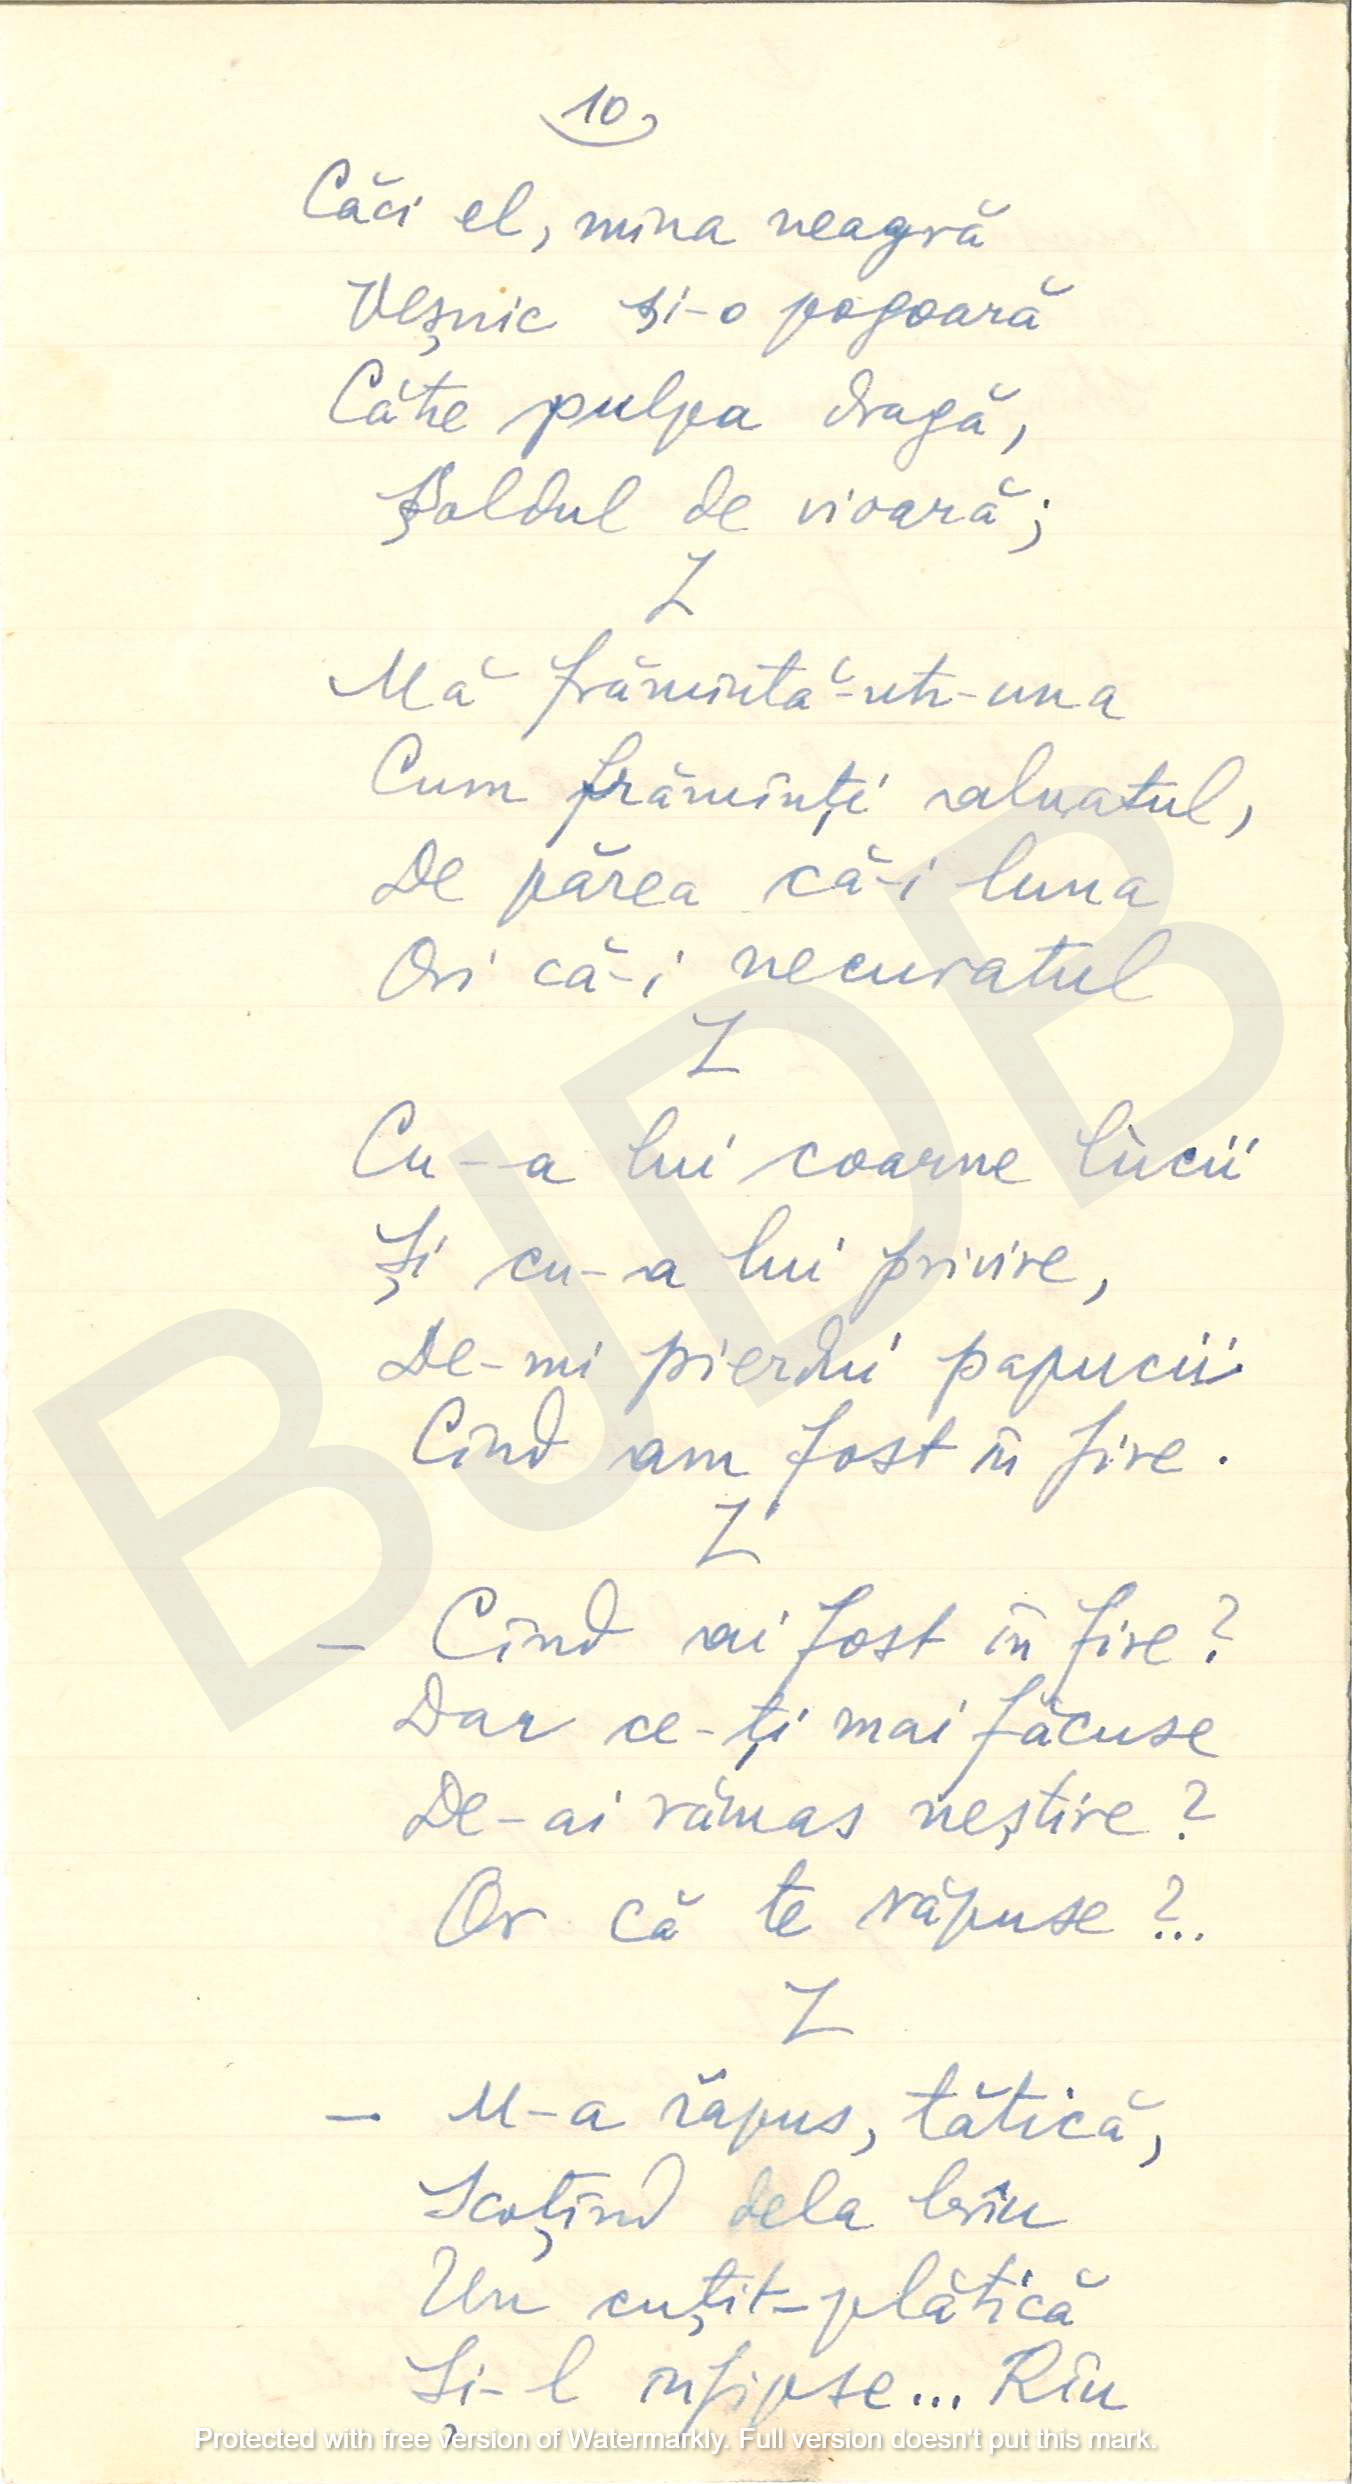 10
Căci el, mîna neagră
Veșnic și-o pogoară
Căte pulpa dragă,
Șoldul de vioară;
Z
Mă frămîntă-ntr-una
Cum frămînți aluatul,
De părea că-i luna
Ori că-i necuratul
Z
Cu-a lui coarne lucii
Și cu-a lui privire,
De-mi pierdui papucii
Cînd am fost în fire.
Z
— Cînd ai fost în fire?
Dar ce-ți mai făcuse
De-ai rămas neștire?
Or că te răpuse?...
Z
— M-a răpus, tătică,
Scoțînd dela brîu
Un cuțit-plătică
Și-l înfipse... Rîu
BJDB
Protected with free version of Watermarkly. Full version doesn't put this mark.